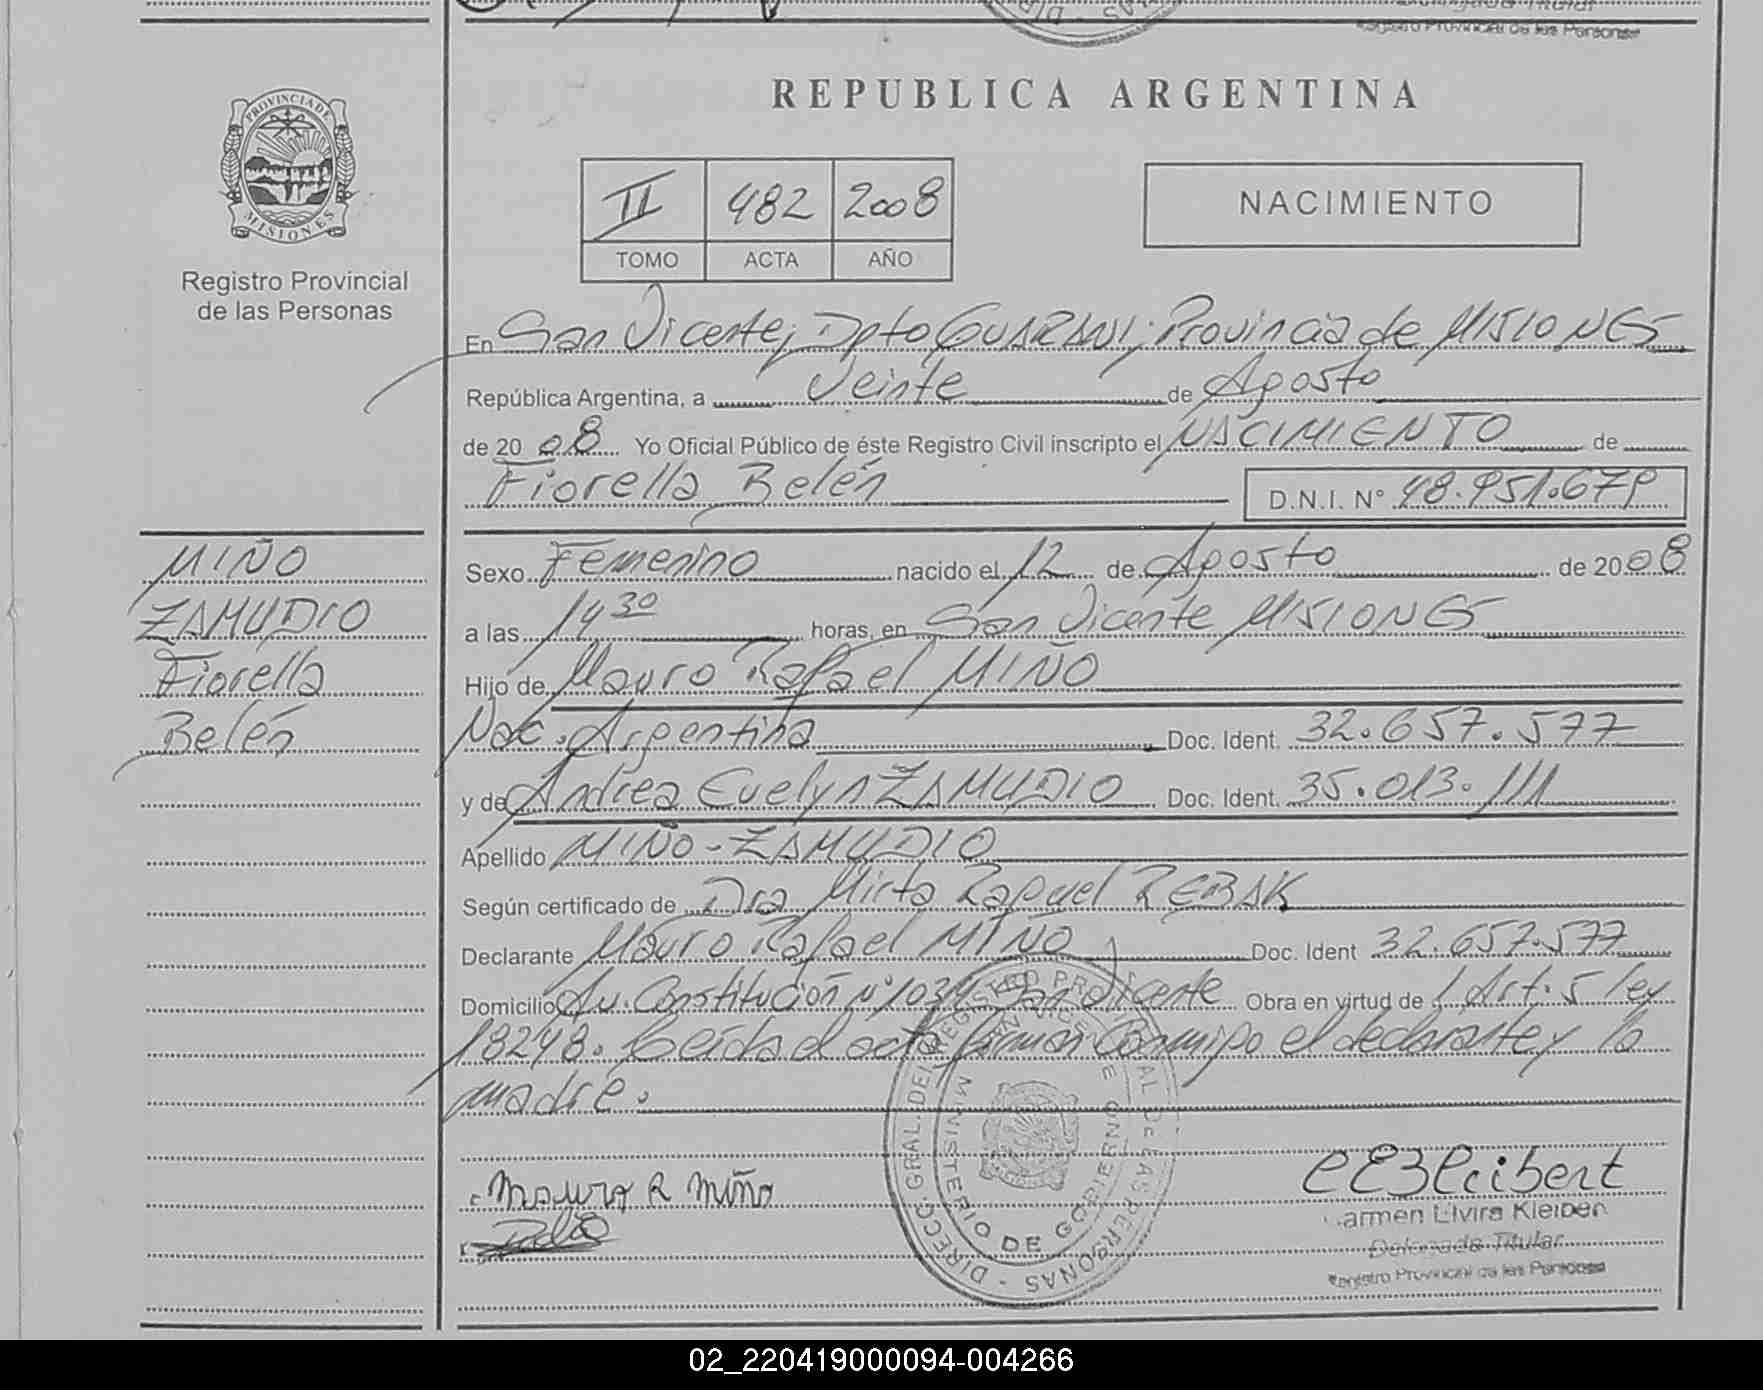 Registro Provincial de las Personas
REPUBLICA ARGENTINA
PROVINCIA DE
MISIONES
Registro Provincial
de las Personas
II 482 2008
TOMO ACTA AÑO
NACIMIENTO
En San Vicente, Dpto GUARANI; Provincia de MISIONES
República Argentina, a Veinte de Agosto
de 2008 Yo Oficial Público de éste Registro Civil inscripto el NACIMIENTO de
Fiorella Belén D.N.I. N° 48.951.679
MIÑO
ZAMUDIO
Fiorella
Belén
Sexo Femenino nacido el 12 de Agosto de 2008
a las 14 30 horas, en San Vicente MISIONES
Hijo de Mauro Rafael MIÑO
Nac. Argentina Doc. Ident. 32.657.577
y de Andrea Evelyn ZAMUDIO Doc. Ident. 35.013.111
Apellido MIÑO-ZAMUDIO
Según certificado de Dra Mirta Raquel REBAK
Declarante Mauro Rafael MIÑO Doc. Ident 32.657.577
Domicilio Av. Constitución N° 1034 San Vicente Obra en virtud de Art. 5 ley
18248. Leída el acta firman Conmigo el declarante y la
madre.
DIRECC. GRAL. DEL REGISTRO PROVINCIAL DE LAS PERSONAS
MINISTERIO DE GOBIERNO
SAN VICENTE
Mauro R Miño
Carmen Elvira Kleibert
Delegada Titular
Registro Provincial de las Personas
02_220419000094-004266